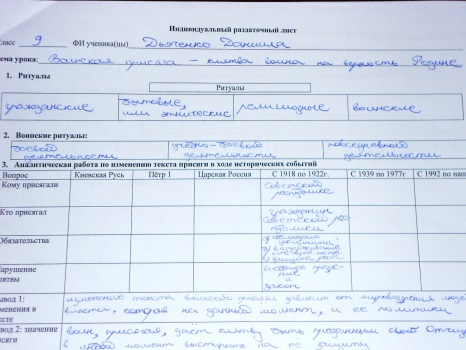 Индивидуальный раздаточный лист
Класс 9 ФИ ученика(цы) Дьяченко Даниила
ема урока: Воинская присяга – клятва воина на верность Родине
1. Ритуалы
Ритуалы
гражданские бытовые, или этнические религиозные воинские
2. Воинские ритуалы:
боевой деятельности учебно-боевой деятельности повседневной деятельности
3. Аналитическая работа по изменению текста присяги в ходе исторических событий
Вопрос Киевская Русь Пётр 1 Царская Россия С 1918 по 1922г. С 1939 по 1977г С 1992 по наш
Кому присягали Советской республике
Кто присягал гражданин Советской республики
Обязательства
Нарушение клятвы закон
ывод 1: изменение текста воинской
менения в власти, которая на данный момент, и её политики
ксте
вод 2: значение воин, присягая, даёт клятву быть преданным своей Отчиз
в любой момент выступить на её защиту